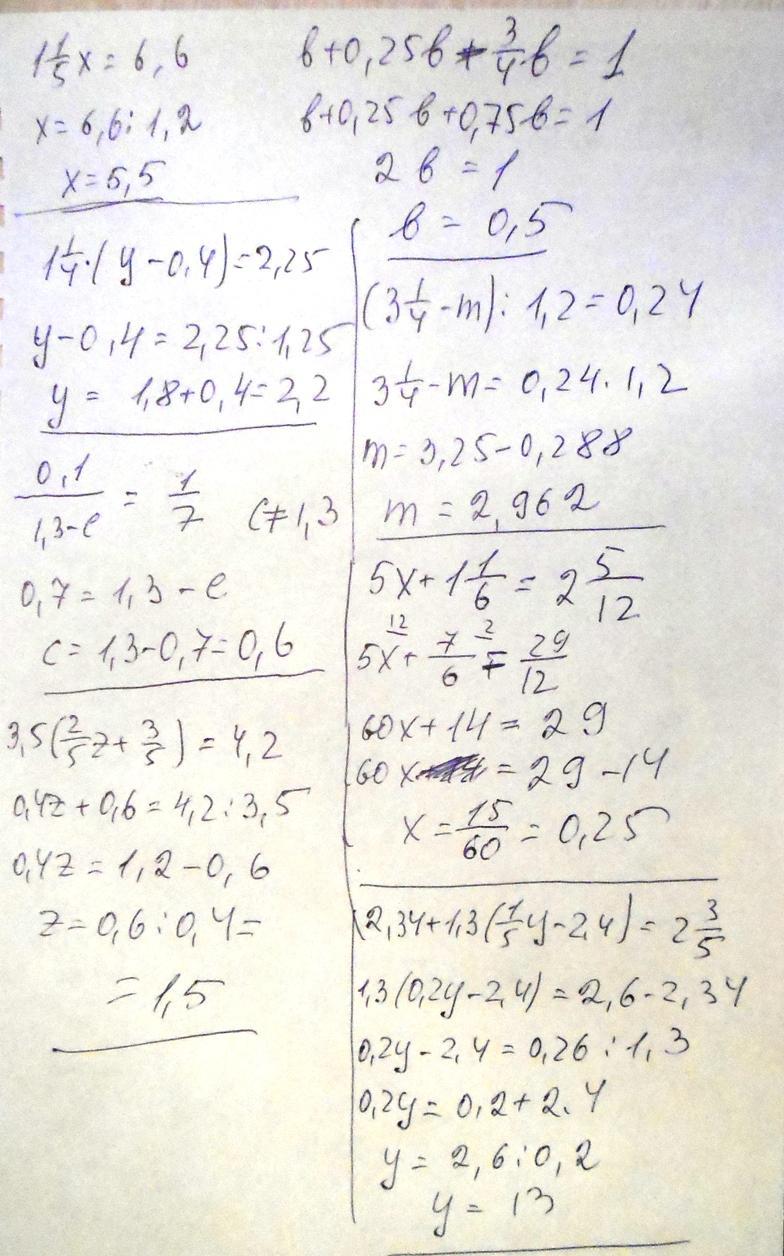 1 1/5 x = 6,6
x = 6,6 : 1,2
x = 5,5
1 1/4 · (y - 0,4) = 2,25
y - 0,4 = 2,25 : 1,25
y = 1,8 + 0,4 = 2,2
0,1/(1,3 - c) = 1/7   c ≠ 1,3
0,7 = 1,3 - c
c = 1,3 - 0,7 = 0,6
3,5 (2/5 z + 3/5) = 4,2
0,4z + 0,6 = 4,2 : 3,5
0,4z = 1,2 - 0,6
z = 0,6 : 0,4 =
= 1,5
b + 0,25b + 3/4 b = 1
b + 0,25b + 0,75b = 1
2b = 1
b = 0,5
(3 1/4 - m) : 1,2 = 0,24
3 1/4 - m = 0,24 · 1,2
m = 3,25 - 0,288
m = 2,962
5x + 1 1/6 = 2 5/12
12 2
5x + 7/6 = 29/12
60x + 14 = 29
60x = 29 - 14
x = 15/60 = 0,25
2,34 + 1,3 (1/5 y - 2,4) = 2 3/5
1,3 (0,2y - 2,4) = 2,6 - 2,34
0,2y - 2,4 = 0,26 : 1,3
0,2y = 0,2 + 2.4
y = 2,6 : 0,2
y = 13